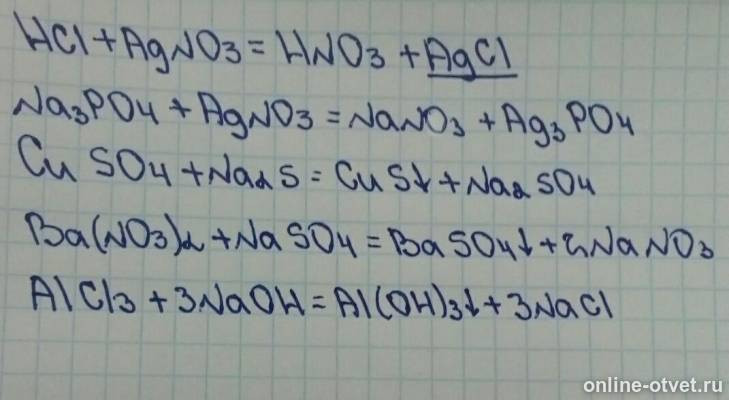 HCl + AgNO3 = HNO3 + AgCl
Na3PO4 + AgNO3 = NaNO3 + Ag3PO4
CuSO4 + Na2S = CuS↓ + Na2SO4
Ba(NO3)2 + NaSO4 = BaSO4↓ + 2NaNO3
AlCl3 + 3NaOH = Al(OH)3↓ + 3NaCl
online-otvet.ru